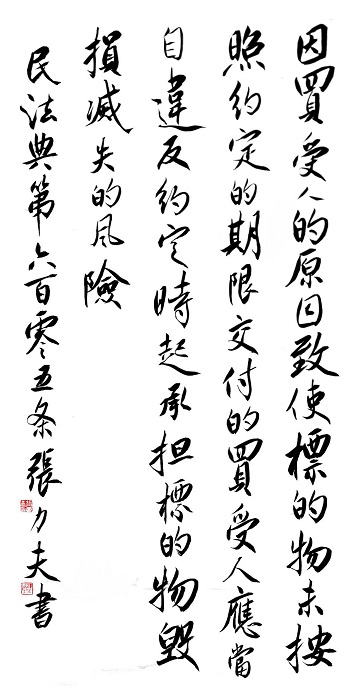 因買受人的原因致使標的物未按
照約定的期限交付的買受人應當
自違反約定時起承担標的物毀
損滅失的風險
民法典第六百零五条張力夫書